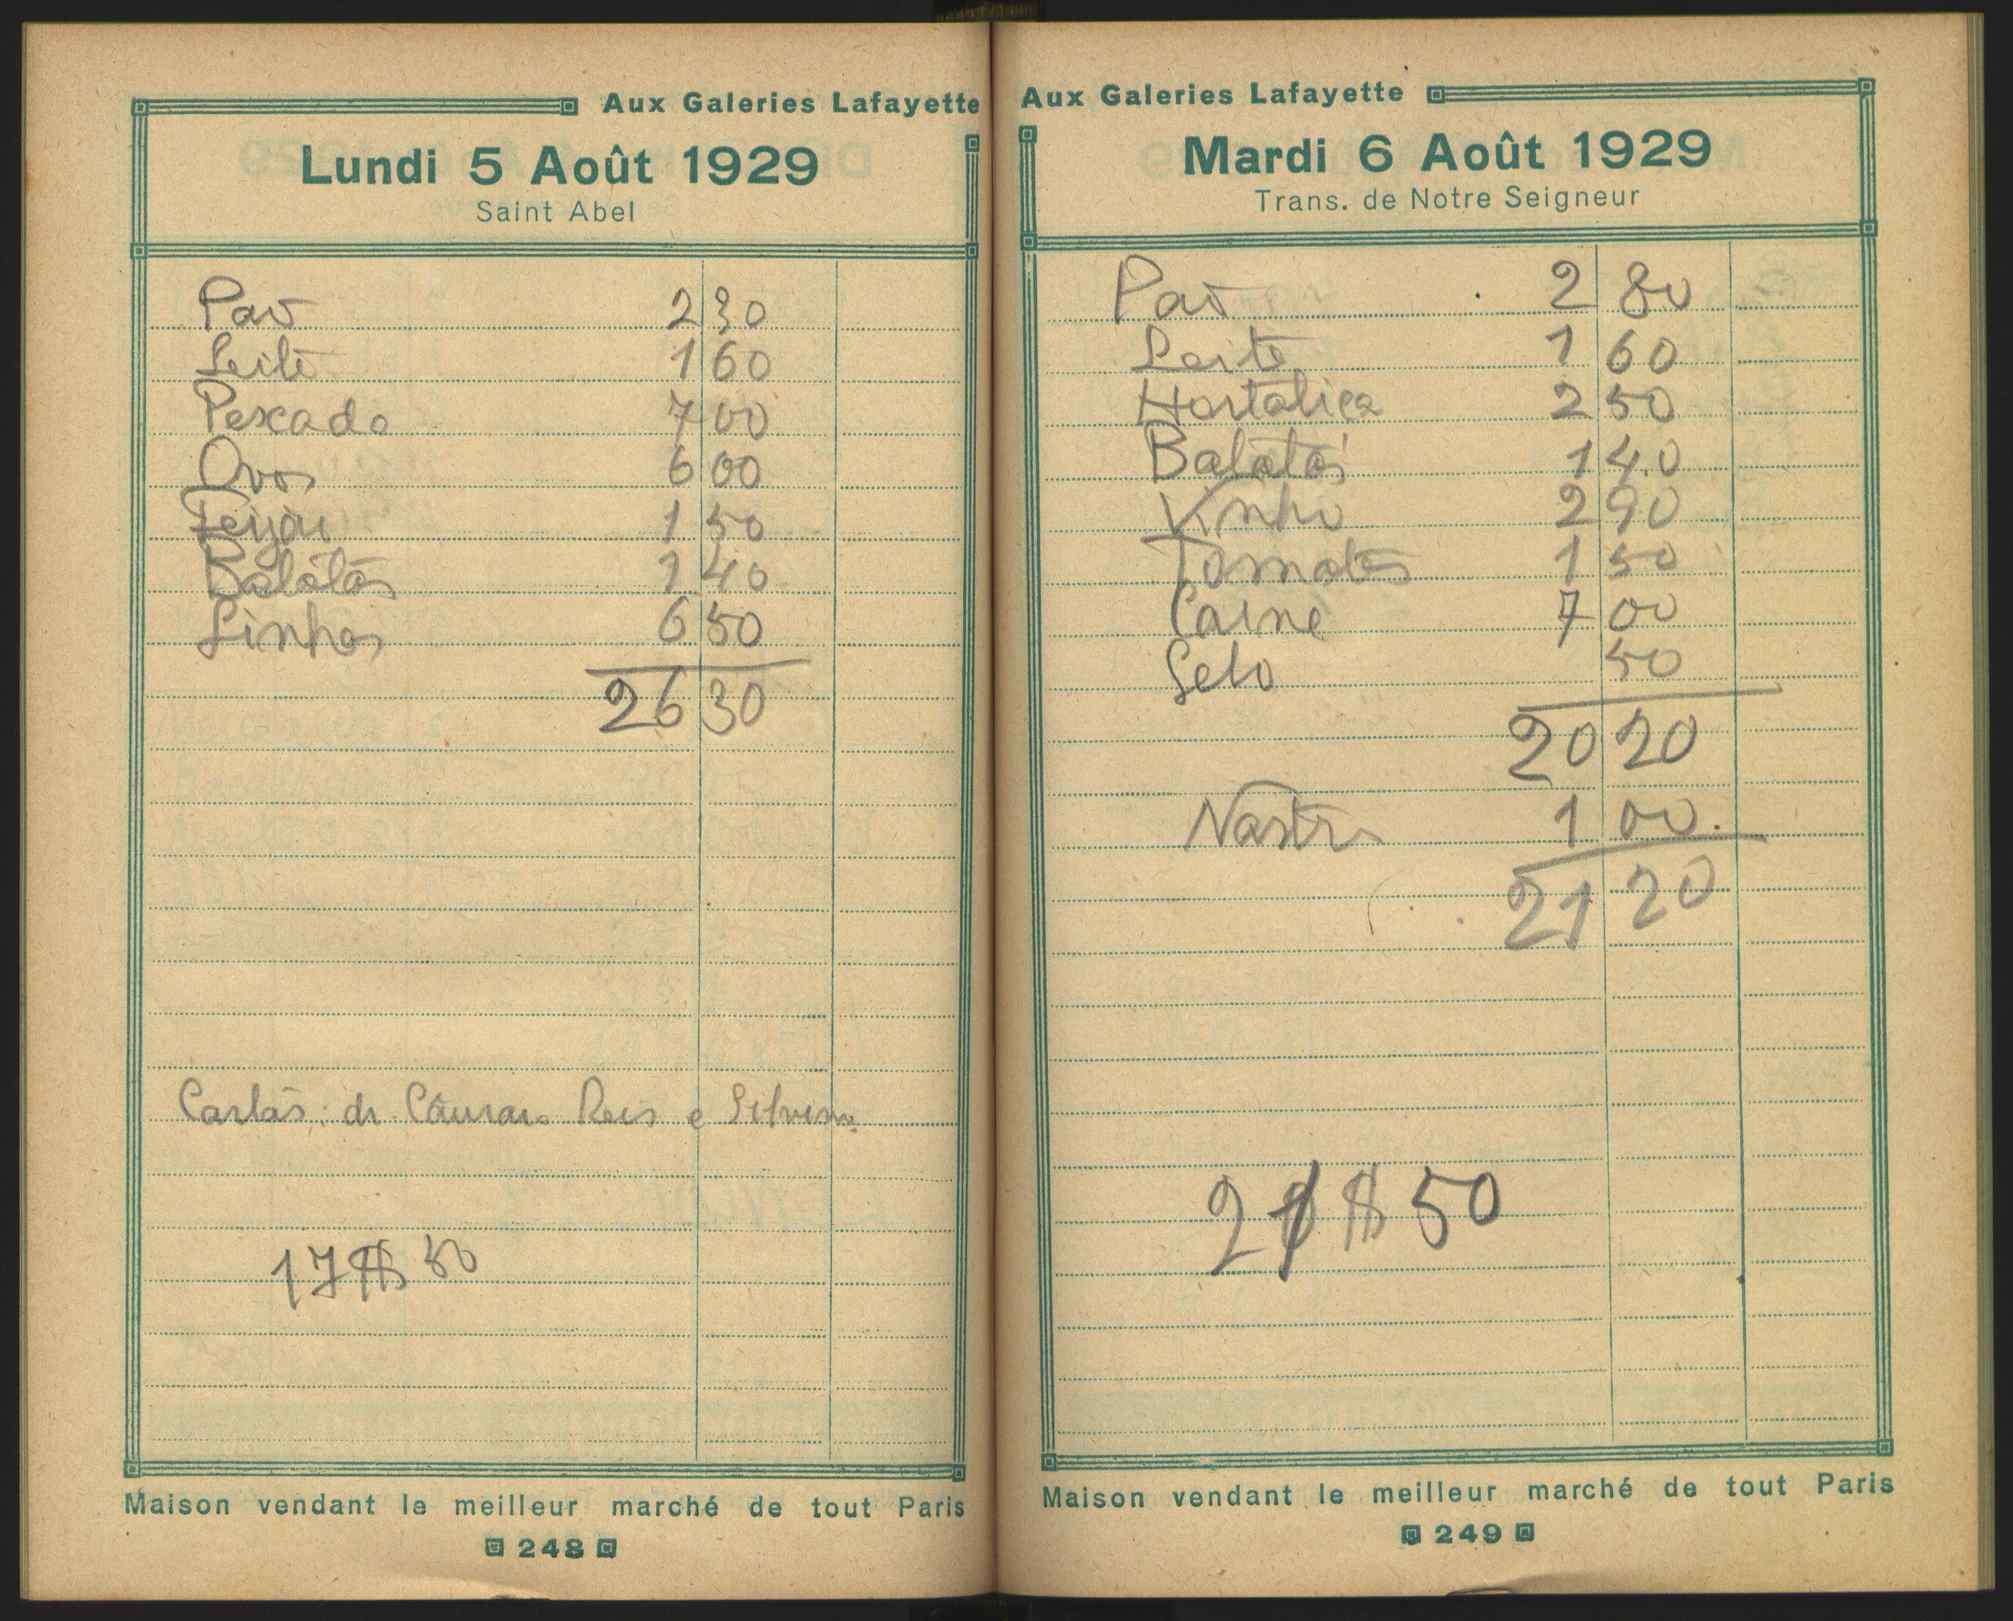 Aux Galeries Lafayette
Lundi 5 Août 1929
Saint Abel
Pão 2 30
Leite 1 60
Pexcado 7 00
Ovos 6 00
Feijão 1 50
Batatas 1 40
Linhas 6 50
26 30
Cartas: de Câmara Reis e Silvina
17$50
Maison vendant le meilleur marché de tout Paris
248
Aux Galeries Lafayette
Mardi 6 Août 1929
Trans. de Notre Seigneur
Pão 2 80
Leite 1 60
Hortaliça 2 50
Batatas 1 40
Vinho 2 90
Tomates 1 50
Carne 7 00
Selo 50
20 20
Nastro 1 00
21 20
21$50
Maison vendant le meilleur marché de tout Paris
249